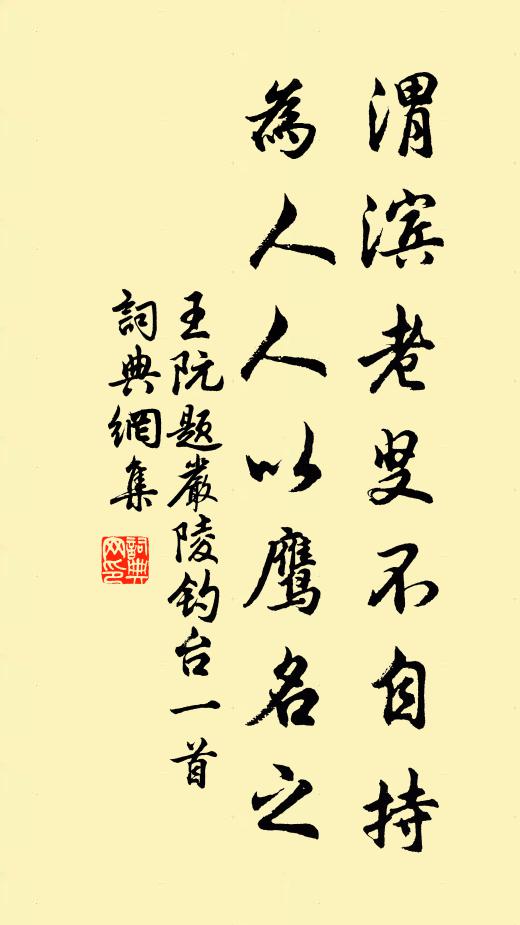 渭滨老叟不自持
為人人以鹰名之
王阮题嚴陵钓台一首
詞典網集
詞典网印